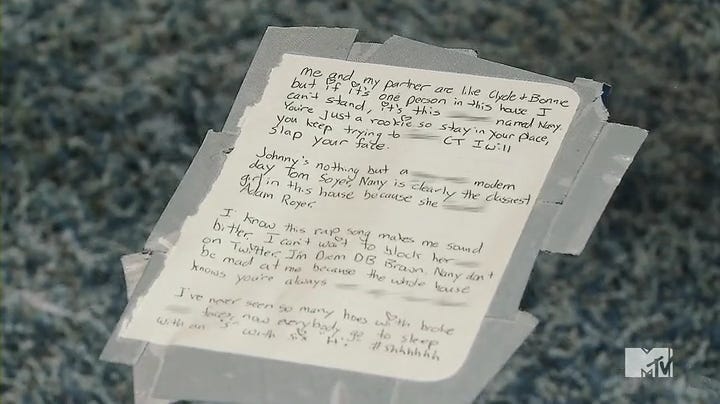 me and my partner are like Clyde + Bonnie
but if it's one person in this house I
can't stand, it's this named Nany.
You're just a rookie so stay in your place,
you keep trying to CT I will
slap your face.
Johnny's nothing but a modern
day Tom Soyer, Nany is clearly the classiest
girl in this house because she
Adam Royer.
I know this rap song makes me sound
bitter, I can't wait to block her
on Twitter, I'm Diem DB Brown. Nany don't
be mad at me because the whole house
knows you're always
I've never seen so many hoes with broke
faces, now everybody go to sleep
with an "S" with six "H". #Shhhhhh
MTV